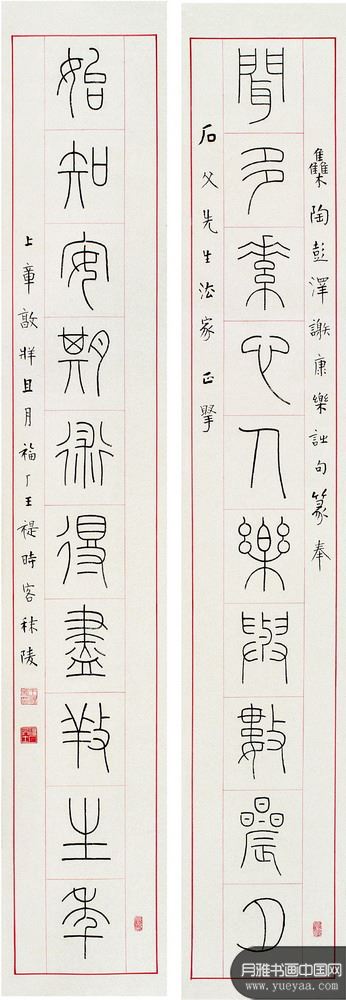 雧陶彭澤謝康樂詩句篆奉
聞多素心人樂與數晨夕
石父先生法家正
始知安期術得盡養生年
上章敦牂且月福厂王禔時客秣陵
月雅书画中国网
www.yueyaa.com